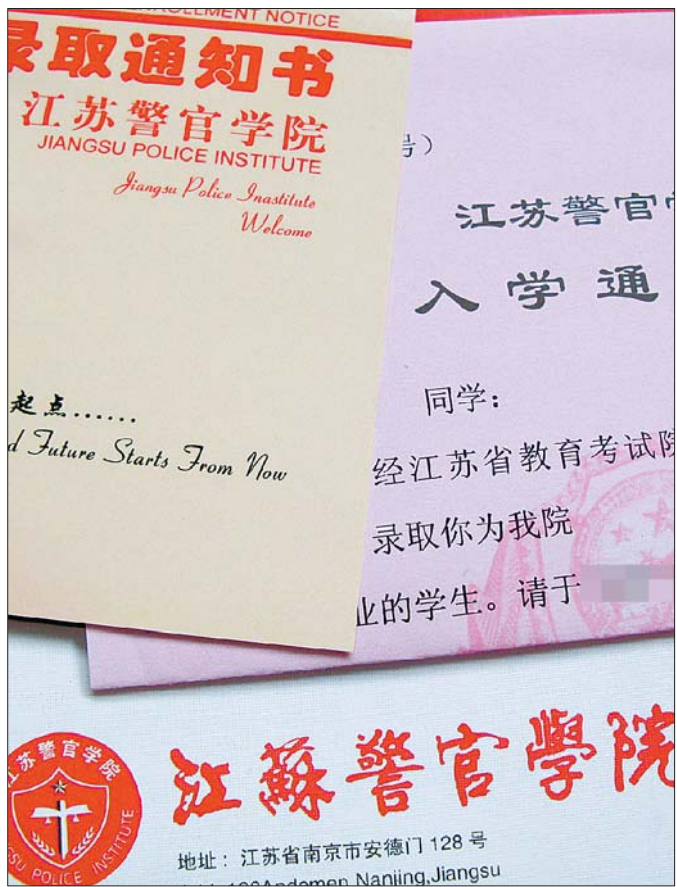 ENROLLMENT NOTICE
录取通知书
江苏警官学院
JIANGSU POLICE INSTITUTE
Jiangsu Police Inastitute
Welcome
起点......
d Future Starts From Now
号）
江苏警官学
入学通
同学：
经江苏省教育考试院
录取你为我院
业的学生。请于
江苏警官学院
JIANGSU POLICE INSTITUTE
江蘇警官學院
地址：江苏省南京市安德门 128 号
128Andemen Nanjing,Jiangsu